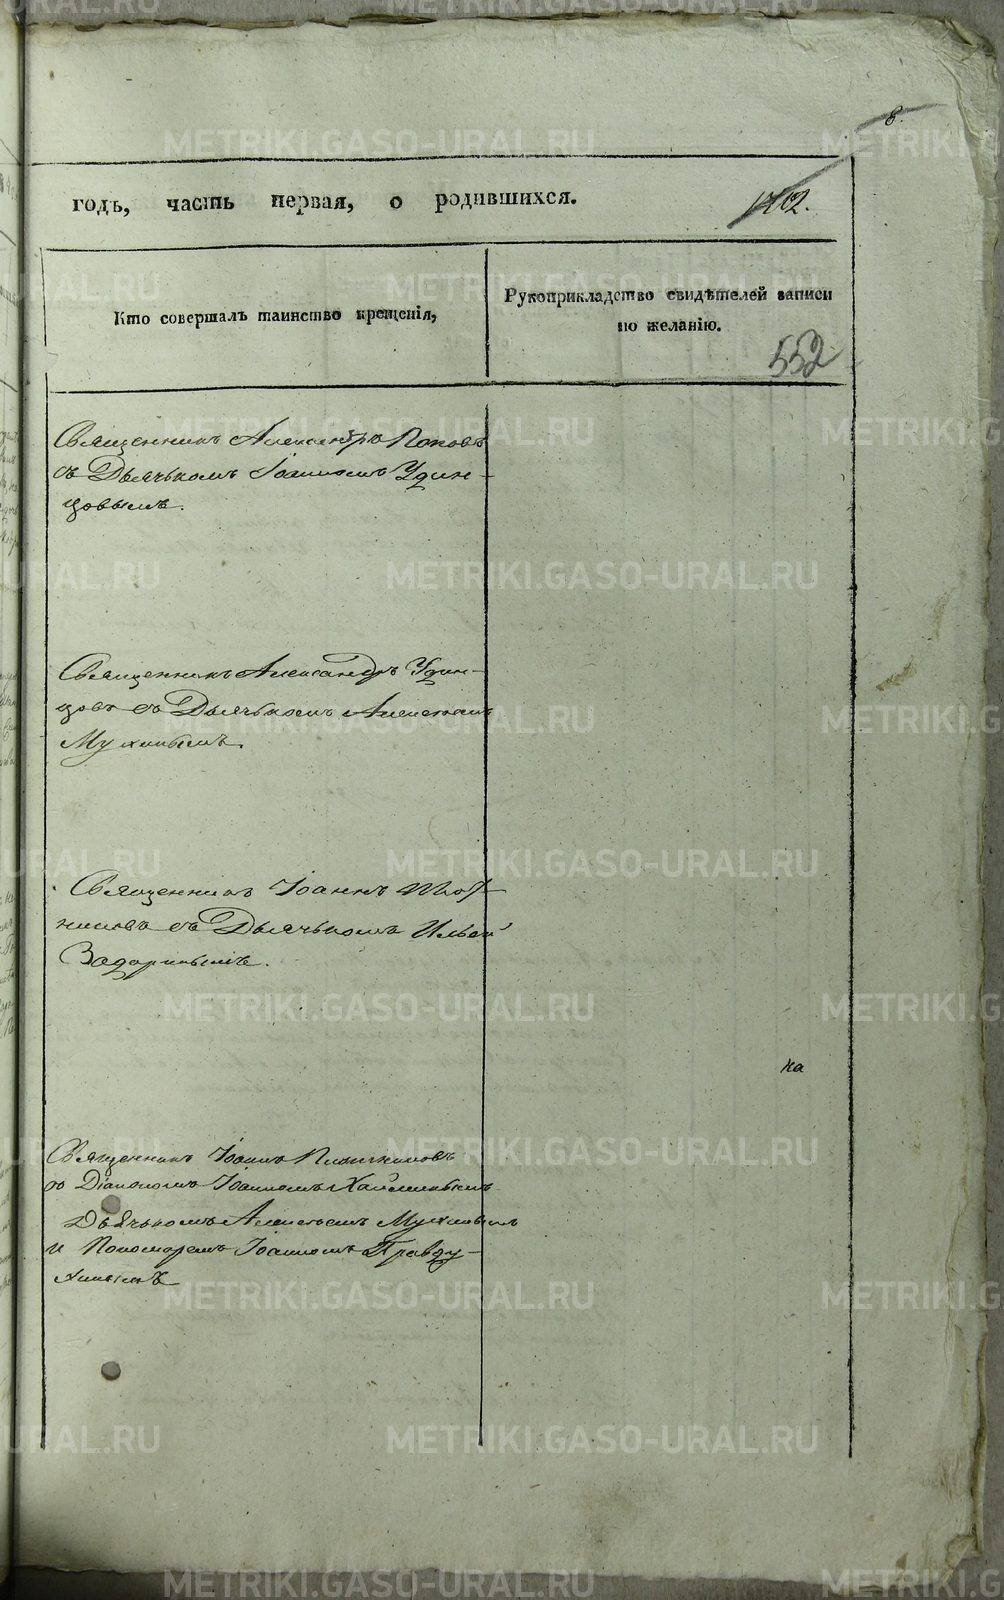 8.
годъ, часть первая, о родившихся.
Кто совершалъ таинство крещенія,
Рукоприкладство свидѣтелей записи
по желанію.
552
Священникъ Александръ Поповъ
съ Дьячькомъ Іоанномъ Удин-
цовымъ.
Священникъ Александръ Удин-
цовъ съ Дьячькомъ Алексѣемъ
Мухинымъ.
Священникъ Іоаннъ
никовъ съ Дьячькомъ Ильей
Задоринымъ.
на
Священникъ Іоаннъ Плотниковъ
со Діакономъ Іоанномъ
Дьячькомъ Алексѣемъ Мухинымъ
и Пономаремъ Іоанномъ Правду-
хинымъ
METRIKI.GASO-URAL.RU